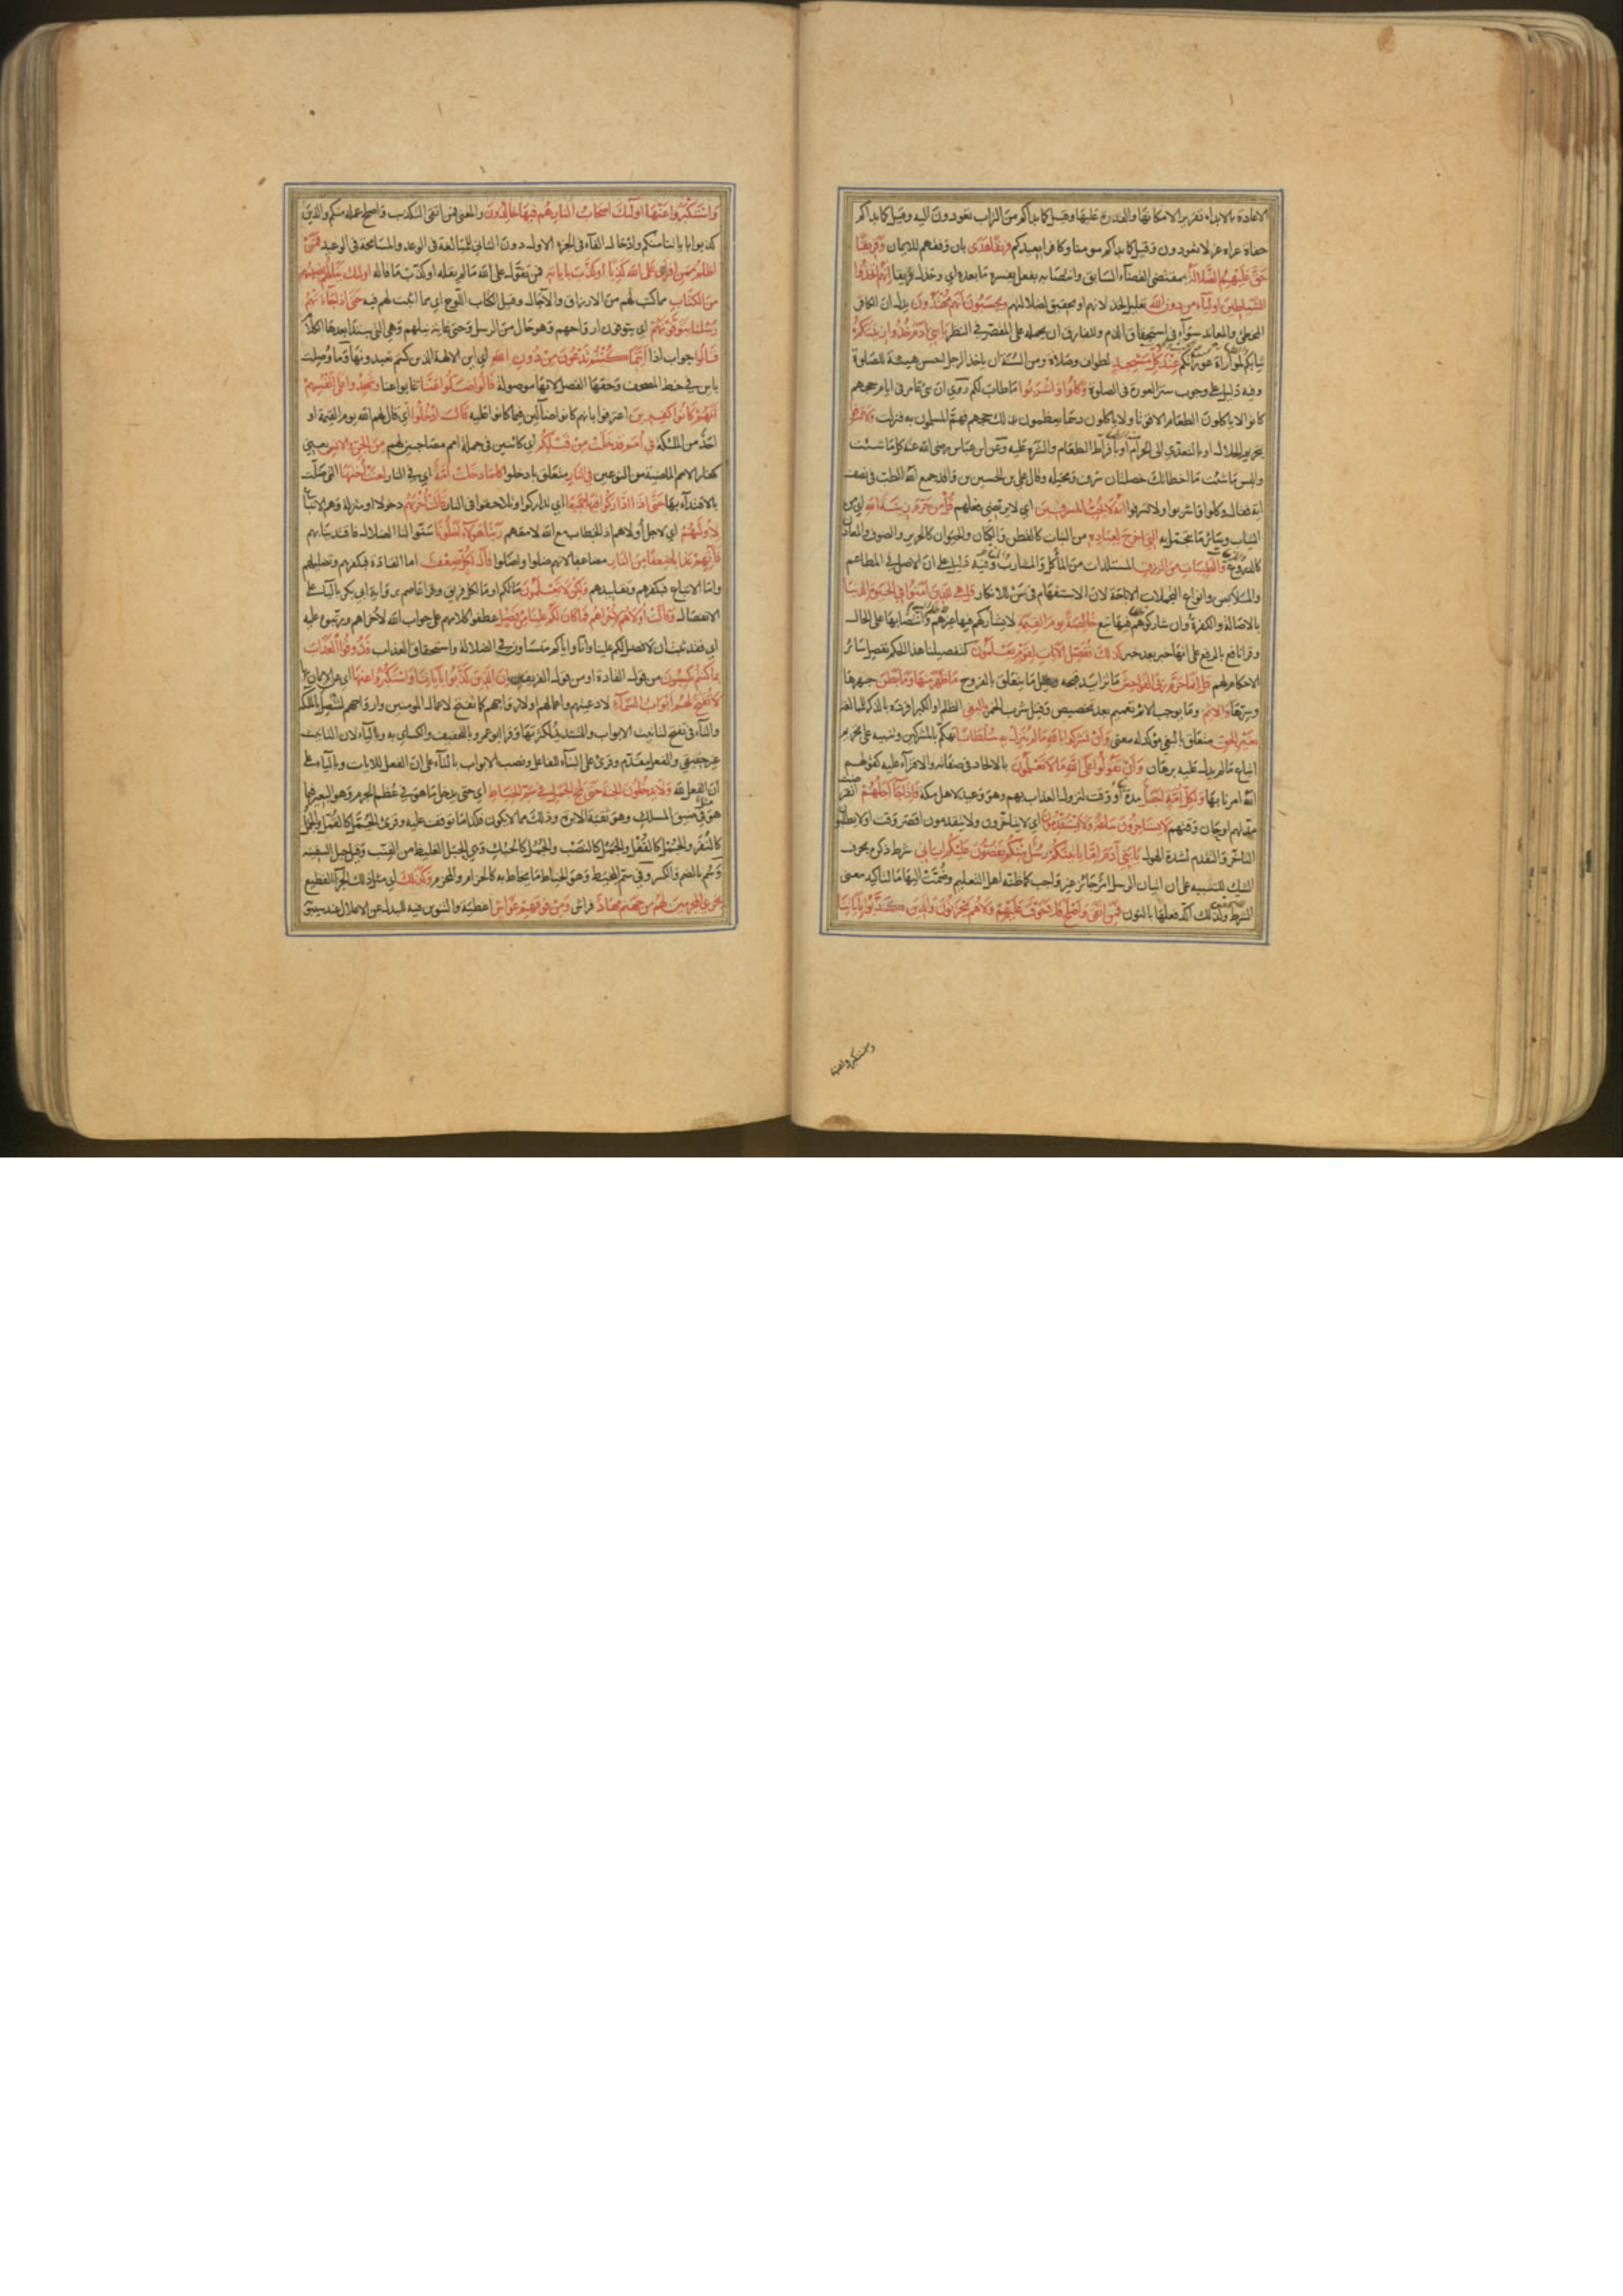 الاعادة بالابداء تقريرا لامكانها والقدرة عليها وقيل كما بداكم من التراب تعودون اليه وقيل كما بداكم
حفاة عراة غرلا تعودون وقيل كما بداكم مومنا وكافرا يعيدكم فريقا هدى بان وفقهم للايمان وفريقا
حق عليهم الضلالة بمقتضى القضاء السابق وانتصابه بفعل يفسره ما بعده اي وخذل فريقا انهم اتخذوا
الشياطين اولياء من دون الله تعليل لخذلانهم او تحقيق لضلالهم ويحسبون انهم مهتدون يدل ان الكافر
المخطئ والمعاند سواء في استحقاق الذم وللفارق ان يحمله على المقصر في النظر يا بني ادم خذوا زينتكم
ثيابكم لمواراة عوراتكم عند كل مسجد لطواف وصلاة ومن السنة ان ياخذ الرجل احسن هيئة للصلوة
وفيه دليل على وجوب ستر العورة في الصلوة وكلوا واشربوا ما طاب لكم روي ان بني عامر في ايام حجهم
كانوا لا ياكلون الطعام الا قوتا ولا ياكلون دسما يعظمون بذلك حجهم فهم المسلمون به فنزلت ولا تسرفوا
بتحريم الحلال او بالتعدي الى الحرام او بافراط الطعام والشره عليه وعن ابن عباس رضي الله عنه كل ما شئت
والبس ما شئت ما اخطاتك خصلتان سرف ومخيلة وقال علي بن الحسين بن واقد جمع الله الطب في نصف
اية فقال وكلوا واشربوا ولا تسرفوا انه لا يحب المسرفين اي لا يرتضي فعلهم قل من حرم زينة الله من
الثياب وسائر ما يتجمل به التي اخرج لعباده من النبات كالقطن والكتان والحيوان كالحرير والصوف والمعادن
كالدروع والطيبات من الرزق المستلذات من المآكل والمشارب وفيه دليل على ان الاصل في المطاعم
والملابس وانواع التجملات الاباحة لان الاستفهام في من للانكار قل هي للذين امنوا في الحيوة الدنيا
بالاصالة والكفرة وان شاركوهم فيها فتبع خالصة يوم القيمة لا يشاركهم فيها غيرهم وانتصابها على الحال
وقرا نافع بالرفع على انها خبر بعد خبر كذلك نفصل الايات لقوم يعلمون كتفصيلنا هذا الحكم نفصل سائر
الاحكام لهم قل انما حرم ربي الفواحش ما تزايد قبحه وقيل ما يتعلق بالفروج ما ظهر منها وما بطن جهرها
وسرها والاثم وما يوجب الاثم تعميم بعد تخصيص وقيل شرب الخمر والبغي الظلم او الكبر افرده بالذكر للمبالغة
بغير الحق متعلق بالبغي مؤكد له معنى وان تشركوا بالله ما لم ينزل به سلطانا تهكم بالمشركين وتنبيه على تحريم
اتباع ما لم يدل عليه برهان وان تقولوا على الله ما لا تعلمون بالالحاد في صفاته والافتراء عليه كقولهم
الله امرنا بها ولكل امة اجل مدة او وقت لنزول العذاب بهم وهو وعيد لاهل مكة فاذا جاء اجلهم انقرضت
مدتهم او حان وقتهم لا يستاخرون ساعة ولا يستقدمون اي لا يتاخرون ولا يتقدمون اقصر وقت او لا يطلبون
التاخر والتقدم لشدة الهول يا بني ادم اما ياتينكم رسل منكم يقصون عليكم اياتي شرط ذكره بحرف
الشك للتنبيه على ان اتيان الرسل امر جائز غير واجب كما ظنه اهل التعليم وضمت اليها ما لتاكيد معنى
الشرط ولذلك اكد فعلها بالنون فمن اتقى واصلح فلا خوف عليهم ولا هم يحزنون والذين كذبوا باياتنا
واستكبروا عنها
واستكبروا عنها اولئك اصحاب النار هم فيها خالدون والمعنى فمن اتقى التكذيب واصلح عمله منكم والذين
كذبوا باياتنا منكم وادخال الفاء في الجزء الاول دون الثاني للمبالغة في الوعد والمسامحة في الوعيد فمن
اظلم ممن افترى على الله كذبا او كذب باياته فمن تقول على الله ما لم يقله او كذب ما قاله اولئك ينالهم نصيبهم
من الكتاب مما كتب لهم من الارزاق والآجال وقيل الكتاب اللوح اي مما اثبت لهم فيه حتى اذا جاءتهم
رسلنا يتوفونهم اي يتوفون ارواحهم وهو حال من الرسل وحتى غاية نيلهم وهي التي يبتدا بعدها الكلام
قالوا جواب اذا اينما كنتم تدعون من دون الله اي اين الالهة الذين كنتم تعبدونها وما وصلت
باين في خط المصحف وحقها الفصل لانها موصولة قالوا ضلوا عنا غابوا عنا وشهدوا على انفسهم
انهم كانوا كافرين اعترفوا بانهم كانوا ضالين فيما كانوا عليه قال ادخلوا اي قال لهم الله يوم القيمة او
احد من الملئكة في امم قد خلت من قبلكم اي كائنين في جملة امم مصاحبين لهم من الجن والانس يعني
كفار الامم الماضية من النوعين في النار متعلق بادخلوا كلما دخلت امة اي في النار لعنت اختها التي ضلت
بالاقتداء بها حتى اذا اداركوا فيها جميعا اي تداركوا وتلاحقوا في النار قالت اخريهم دخولا او منزلة وهم الاتباع
لاوليهم اي لاجل اولاهم اذ الخطاب مع الله لا معهم ربنا هؤلاء اضلونا سنوا لنا الضلال فاقتدينا بهم
فآتهم عذابا ضعفا من النار مضاعفا لانهم ضلوا واضلوا قال لكل ضعف اما القادة فبكفرهم وتضليلهم
واما الاتباع فبكفرهم وتقليدهم ولكن لا تعلمون ما لكم او ما لكل فريق وقرا عاصم برواية ابي بكر بالياء على
الانفصال وقالت اولاهم لاخراهم فما كان لكم علينا من فضل عطفوا كلامهم على جواب الله لاخراهم ورتبوه عليه
اي فقد ثبت ان لا فضل لكم علينا وانا واياكم متساوون في الضلالة واستحقاق العذاب فذوقوا العذاب
بما كنتم تكسبون من قول القادة او من قول الفريقين ان الذين كذبوا باياتنا واستكبروا عنها اي عن الايمان بها
لا تفتح لهم ابواب السماء لادعيتهم واعمالهم او لارواحهم كما تفتح لاعمال المومنين وارواحهم لتتصل بالملئكة
والتاء في تفتح لتانيث الابواب والتشديد لكثرتها وقرا ابو عمرو بالتخفيف والكسائي به وبالياء لان التانيث
غير حقيقي والفعل مقدم وقرئ على البناء للفاعل ونصب الابواب بالتاء على ان الفعل للايات وبالياء على
ان الفعل لله ولا يدخلون الجنة حتى يلج الجمل في سم الخياط اي حتى يدخل ما هو مثل في عظم الجرم وهو البعير فيما
هو مثل في ضيق المسلك وهو ثقبة الابرة وذلك مما لا يكون فكذا ما توقف عليه وقرئ الجمل كالقمل والجمل
كالنغر والجمل كالقفل والجمل كالنصب والجمل كالحبل وهي الحبل الغليظ من القنب وقيل حبل السفينة
وسم بالضم والكسر وفي سم المخيط وهو الخياط ما يخاط به كالحزام والمحزم وكذلك اي مثل ذلك الجزاء الفظيع
نجزي المجرمين لهم من جهنم مهاد فراش ومن فوقهم غواش اغطية والتنوين فيه للبدل عن الاعلال عند سيبويه